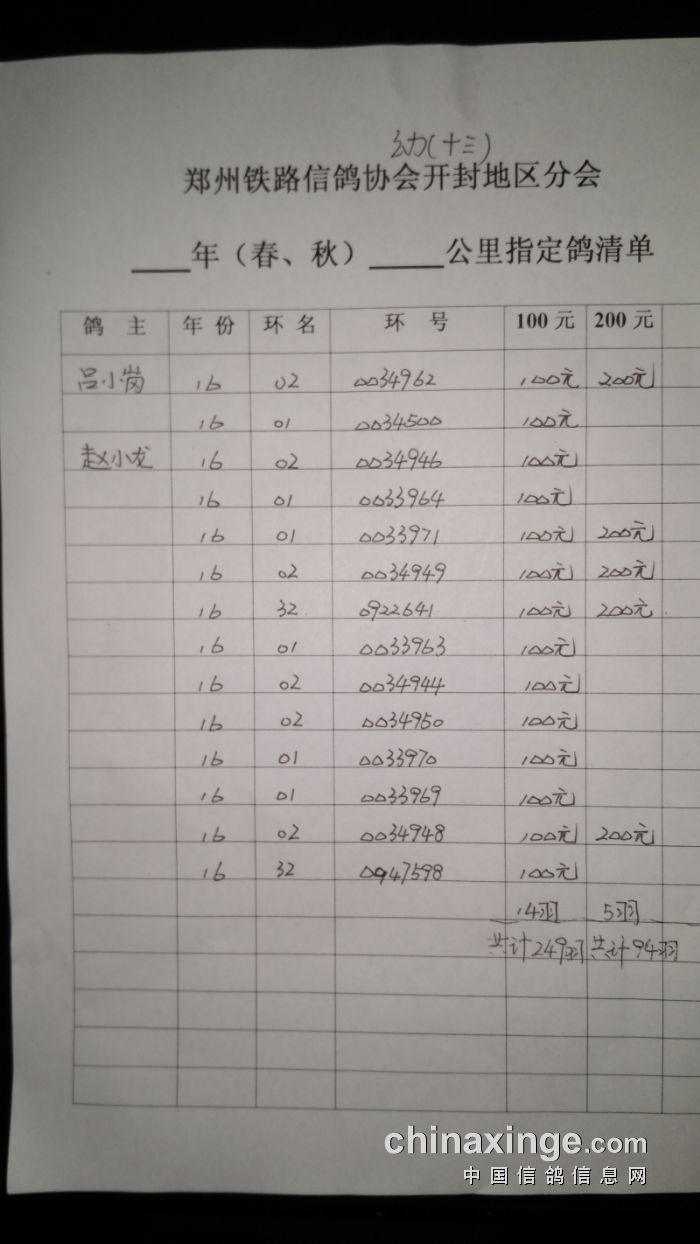 幼(十三)
郑州铁路信鸽协会开封地区分会
____年（春、秋）_____公里指定鸽清单
鸽 主 年 份 环 名 环 号 100 元 200 元
吕小岗 16 02 0034962 100元 200元
16 01 0034500 100元
赵小龙 16 02 0034946 100元
16 01 0033964 100元
16 01 0033971 100元 200元
16 02 0034949 100元 200元
16 32 0922641 100元 200元
16 01 0033963 100元
16 02 0034944 100元
16 02 0034950 100元
16 01 0033970 100元
16 01 0033969 100元
16 02 0034948 100元 200元
16 32 0947598 100元
14羽 5羽
共计249羽 共计94羽
chinaxinge.com
中国信鸽信息网